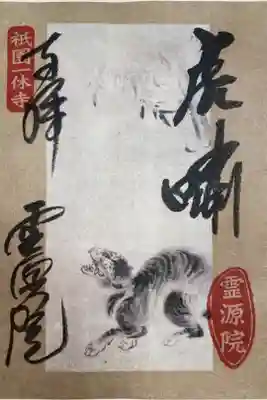 虎嘯
奉拝
祇園一休寺
霊源院
霊源院